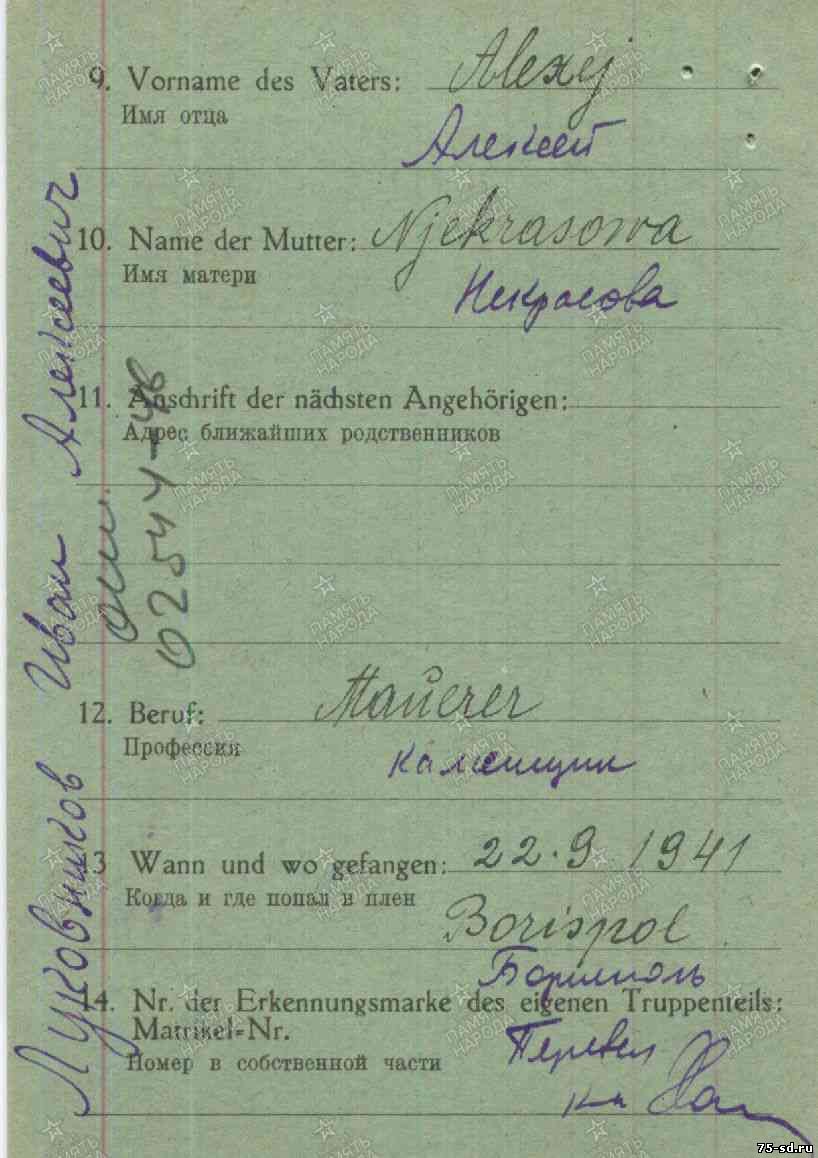 9. Vorname des Vaters: Alexej
Имя отца
Алексей
10. Name der Mutter: Njekrasowa
Имя матери
Некрасова
11. Anschrift der nächsten Angehörigen:
Адрес ближайших родственников
12. Beruf: Maŭerer
Профессия
Каменщик
13 Wann und wo gefangen: 22.9 1941
Когда и где попал в плен
Borispol
Борисполь
14. Nr. der Erkennungsmarke des eigenen Truppenteils:
Matrikel=Nr.
Номер в собственной части
Перевел
Луковников Иван Алексеевич
02544-46
ПАМЯТЬ НАРОДА
75-sd.ru